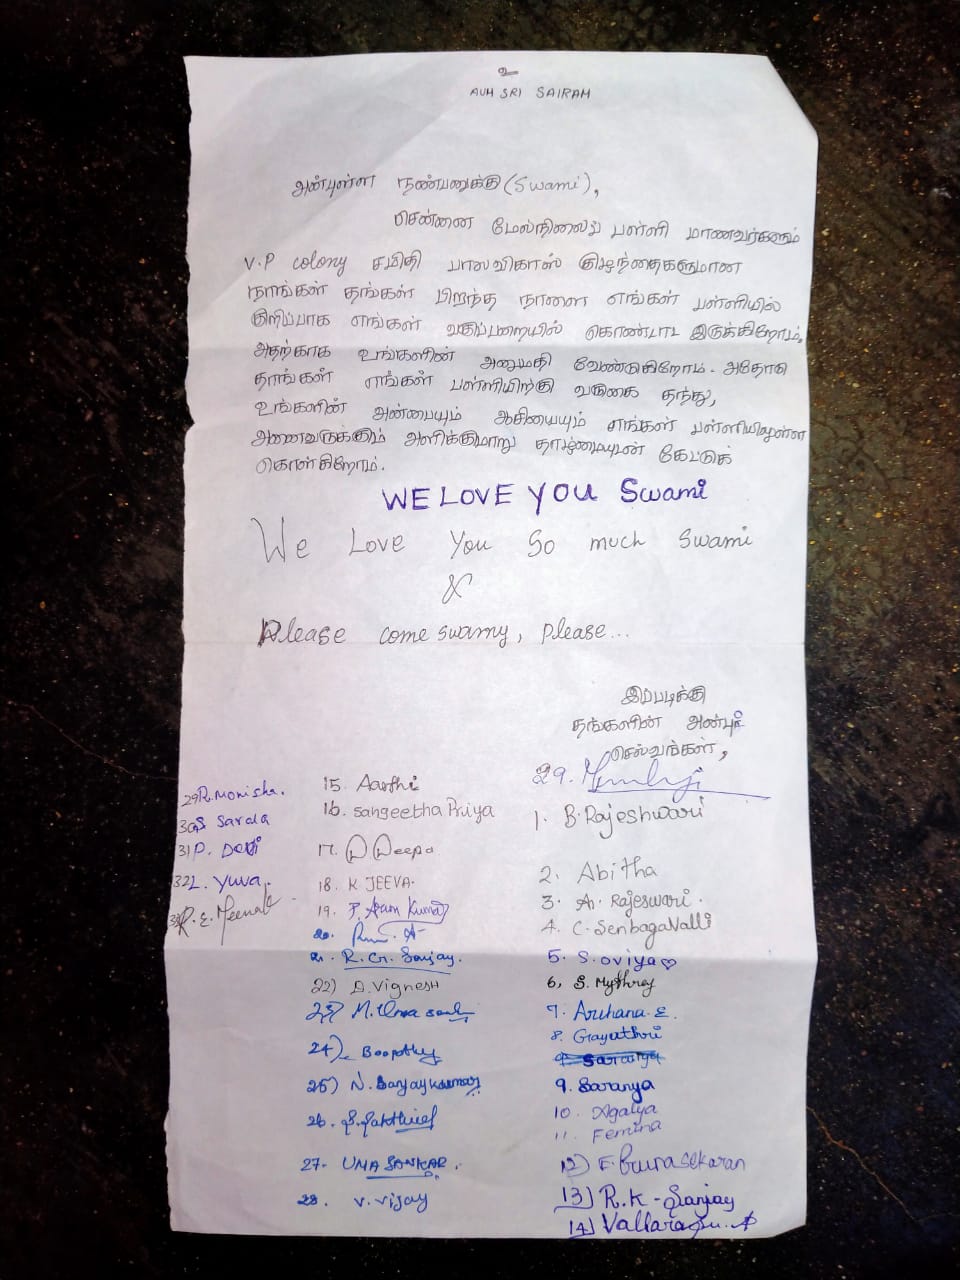 உ
AUM SRI SAIRAM
அன்புள்ள நண்பனுக்கு (Swami),
சென்னை மேல்நிலைப் பள்ளி மாணவர்களும்
V.P colony சமிதி பாலவிகாஸ் குழந்தைகளுமான
நாங்கள் தங்கள் பிறந்த நாளை எங்கள் பள்ளியில்
குறிப்பாக எங்கள் வகுப்பறையில் கொண்டாட இருக்கிறோம்,
அதற்காக உங்களின் அனுமதி வேண்டுகிறோம். அதோடு
தாங்கள் எங்கள் பள்ளியிற்கு வருகை தந்து,
உங்களின் அன்பையும் ஆசியையும் எங்கள் பள்ளியிலுள்ள
அனைவருக்கும் அளிக்குமாறு தாழ்மையுடன் கேட்டுக்
கொள்கிறோம்.
WE LOVE YOU Swami
We Love You So much Swami
&
Please come swamy, please...
இப்படிக்கு
தங்களின் அன்புச்
செல்வங்கள்,
29.
1. B.Rajeshwari
2. Abitha
3. A. Rajeswari.
4. C. Senbagavalli
5. S.oviya♡
6, S. Mythrey
7. Archana. E.
8. Gayathri
9. Saranya
10. Agalya
11. Femina
12) E. Gunasekaran
13) R.K - Sanjay
14)
15. Aarthi
16. Sangeetha Priya
17. D Deepa
18. K. JEEVA.
19. P. Arun Kumar
20.
21. R. G. Sanjay.
22) D. Vignesh
23)
24) Boopathy
25) N. Sanjaykumar
26. S. Sakthivel
27. UMA SANKAR.
28. V. Vijay
29 R. Monisha.
30 S Sarala
31 P. Devi
32 L. Yuva.
33 R. E. Meenak